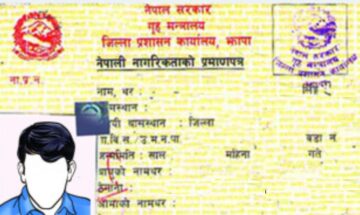 नेपाल सरकार
गृह मन्त्रालय
जिल्ला प्रशासन कार्यालय, झापा
नेपाली नागरिकताको प्रमाणपत्र
ना.प्र.न.
नाम, थर :
स्थान :
स्थायी वासस्थान : जिल्ला
गा.बि.स./उ.म.न.पा. वडा नं
जन्ममिति : साल महिना गते
बाबुको नामथर :
ठेगाना :
आमाको नामथर :